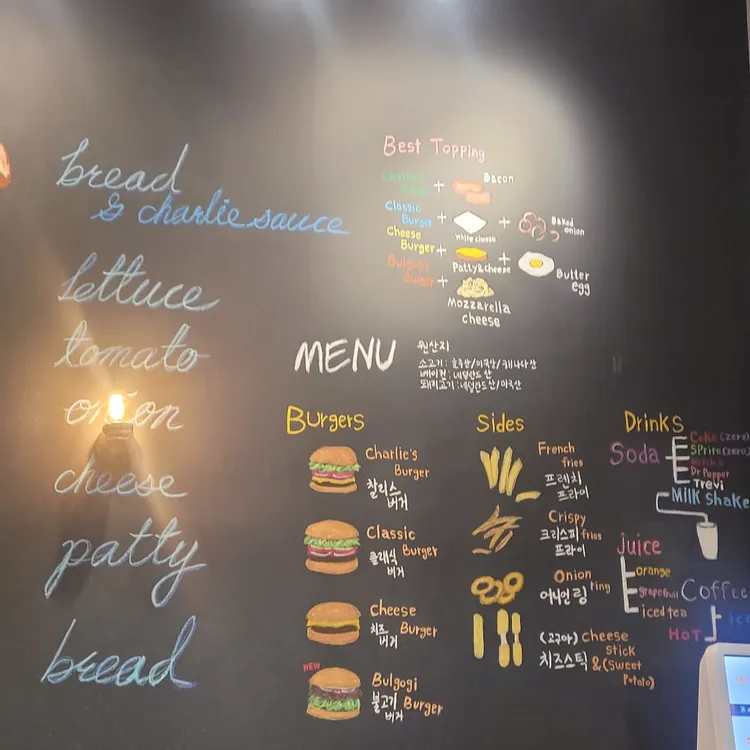 bread
& charlie sauce
lettuce
tomato
onion
cheese
patty
bread
Best Topping
Charlie's
Burger
+
Bacon
Classic
Burger
+
White cheese
+
Baked
onion
Cheese
Burger
+
Patty&cheese
+
Butter
egg
Bulgogi
Burger
+
Mozzarella
cheese
MENU
원산지
소고기: 호주산/미국산/캐나다산
베이컨: 네덜란드산
돼지고기: 네덜란드산/미국산
Burgers
Charlie's
Burger
찰리스
버거
Classic
클래식 Burger
버거
Cheese
치즈 Burger
버거
NEW
Bulgogi
불고기 Burger
버거
Sides
French
fries
프렌치
프라이
Crispy
크리스피 fries
프라이
Onion
어니언링 ring
(고구마) Cheese
stick
치즈스틱 &(Sweet
Potato)
Drinks
Soda
Coke (zero)
Sprite (zero)
Dr Pepper
Trevi
Milk Shake
Juice
orange
grapefruit
iced tea
Coffee
Ice
HOT